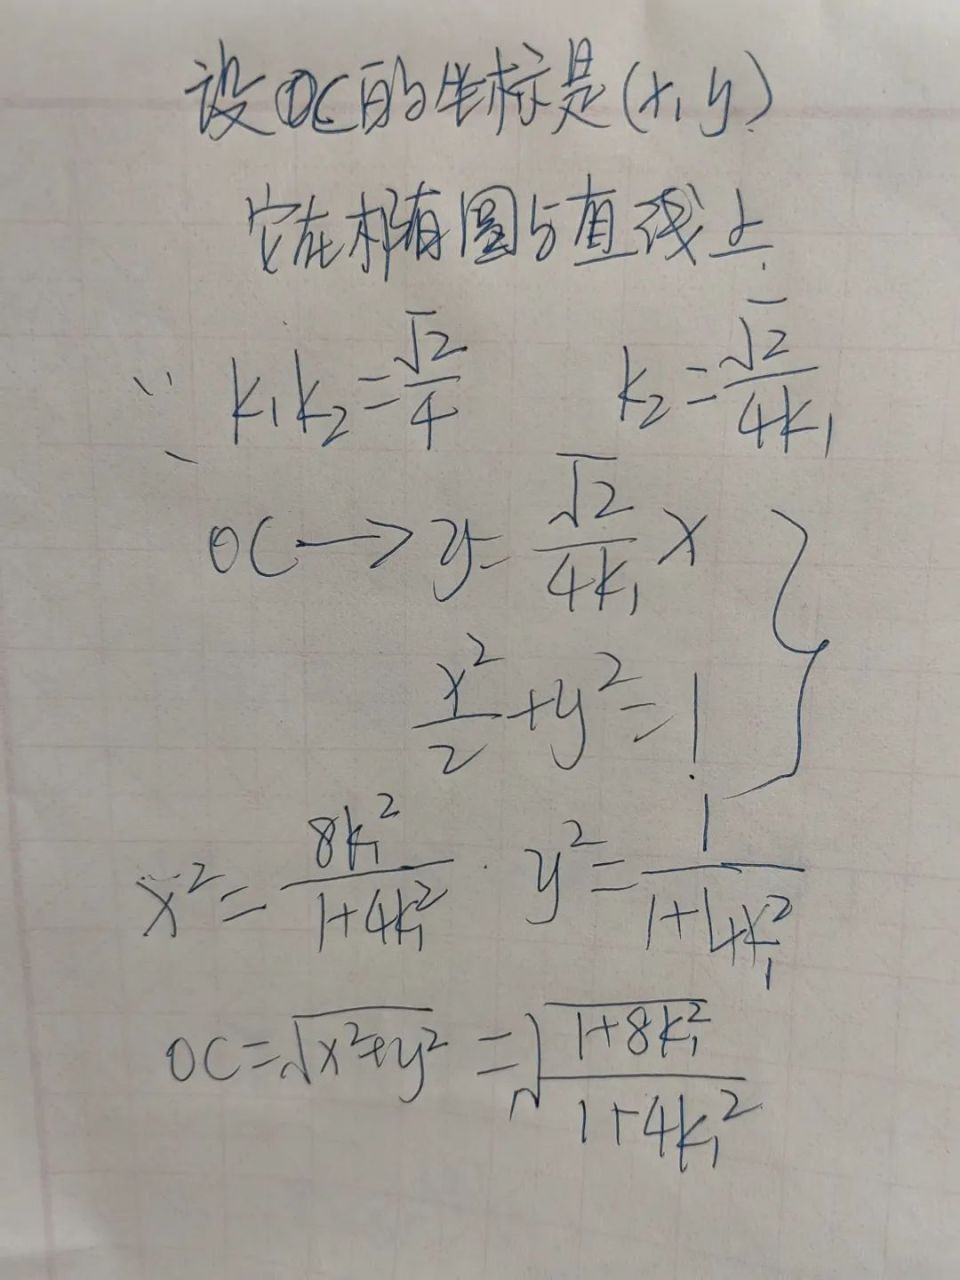 设OC的坐标是(x,y)
它在椭圆与直线上.
∵ k₁k₂=√2/4 k₂=√2/(4k₁)
OC→y=√2/(4k₁) x
x²/2+y²=1
x²=8k₁²/(1+4k₁²) · y²=1/(1+4k₁²)
OC=√(x²+y²)=√((1+8k₁²)/(1+4k₁²))